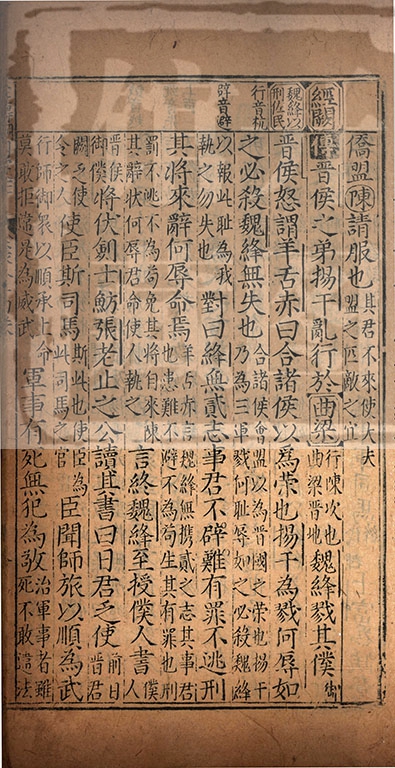 僑盟陳請服也其君不來使大夫盟之匹敵之宜
經闕傳晉侯之弟揚干亂行於曲梁行陳次也曲梁晉地魏絳戮其僕御
魏絳以刑佐民晉侯怒謂羊舌赤曰合諸侯以為榮也揚干為戮何辱如
行音杭之必殺魏絳無失也合諸侯會盟以為晉國之榮也揚干乃為三軍戮何耻辱如之必殺魏絳
辟音避以報此耻為我執之勿失也對曰絳無貳志事君不辟難有罪不逃刑
其將來辭何辱命焉羊舌赤言魏絳無攜貳之志其事君也患難不避不為苟生其有罪也刑
罰不逃不為苟免其將自來陳其辭狀何辱君命使人執之言終魏絳至授僕人書僕人
晉侯御僕將伏劍士魴張老止之公讀其書曰日君乏使前日晉君
闕乏使令之人使臣斯司馬斯此也使臣為此司馬之官臣聞師旅以順為武
行師御衆以順承上命莫敢拒常是為威武軍事有死無犯為敬治軍事者雖死不敢違法